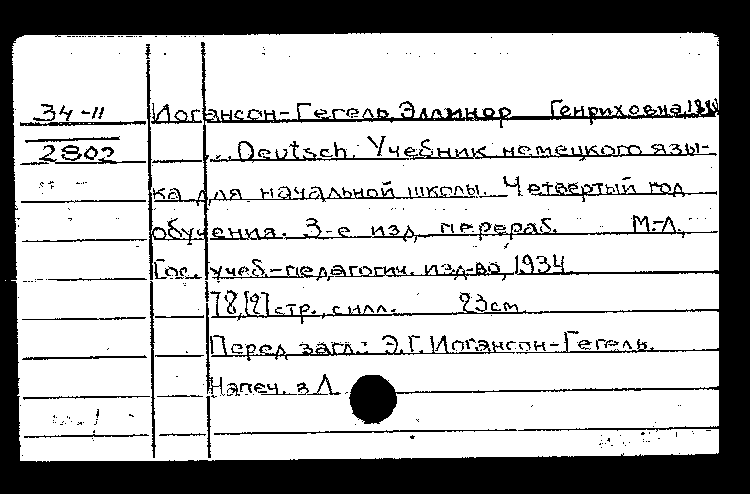 34-11 Иогансон-Гегель, Эллинор Генриховна,
2802 ...Deutsch. Учебник немецкого язы-
ка для начальной школы. Четвертый год
обучения. 3-е изд. перераб. М.-Л.,
Гос. учеб-педагогич. изд-во, 1934
78,[2] стр., с илл. 23 cm
Перед загл.: Э.Г. Иогансон-Гегель.
Напеч. в Л